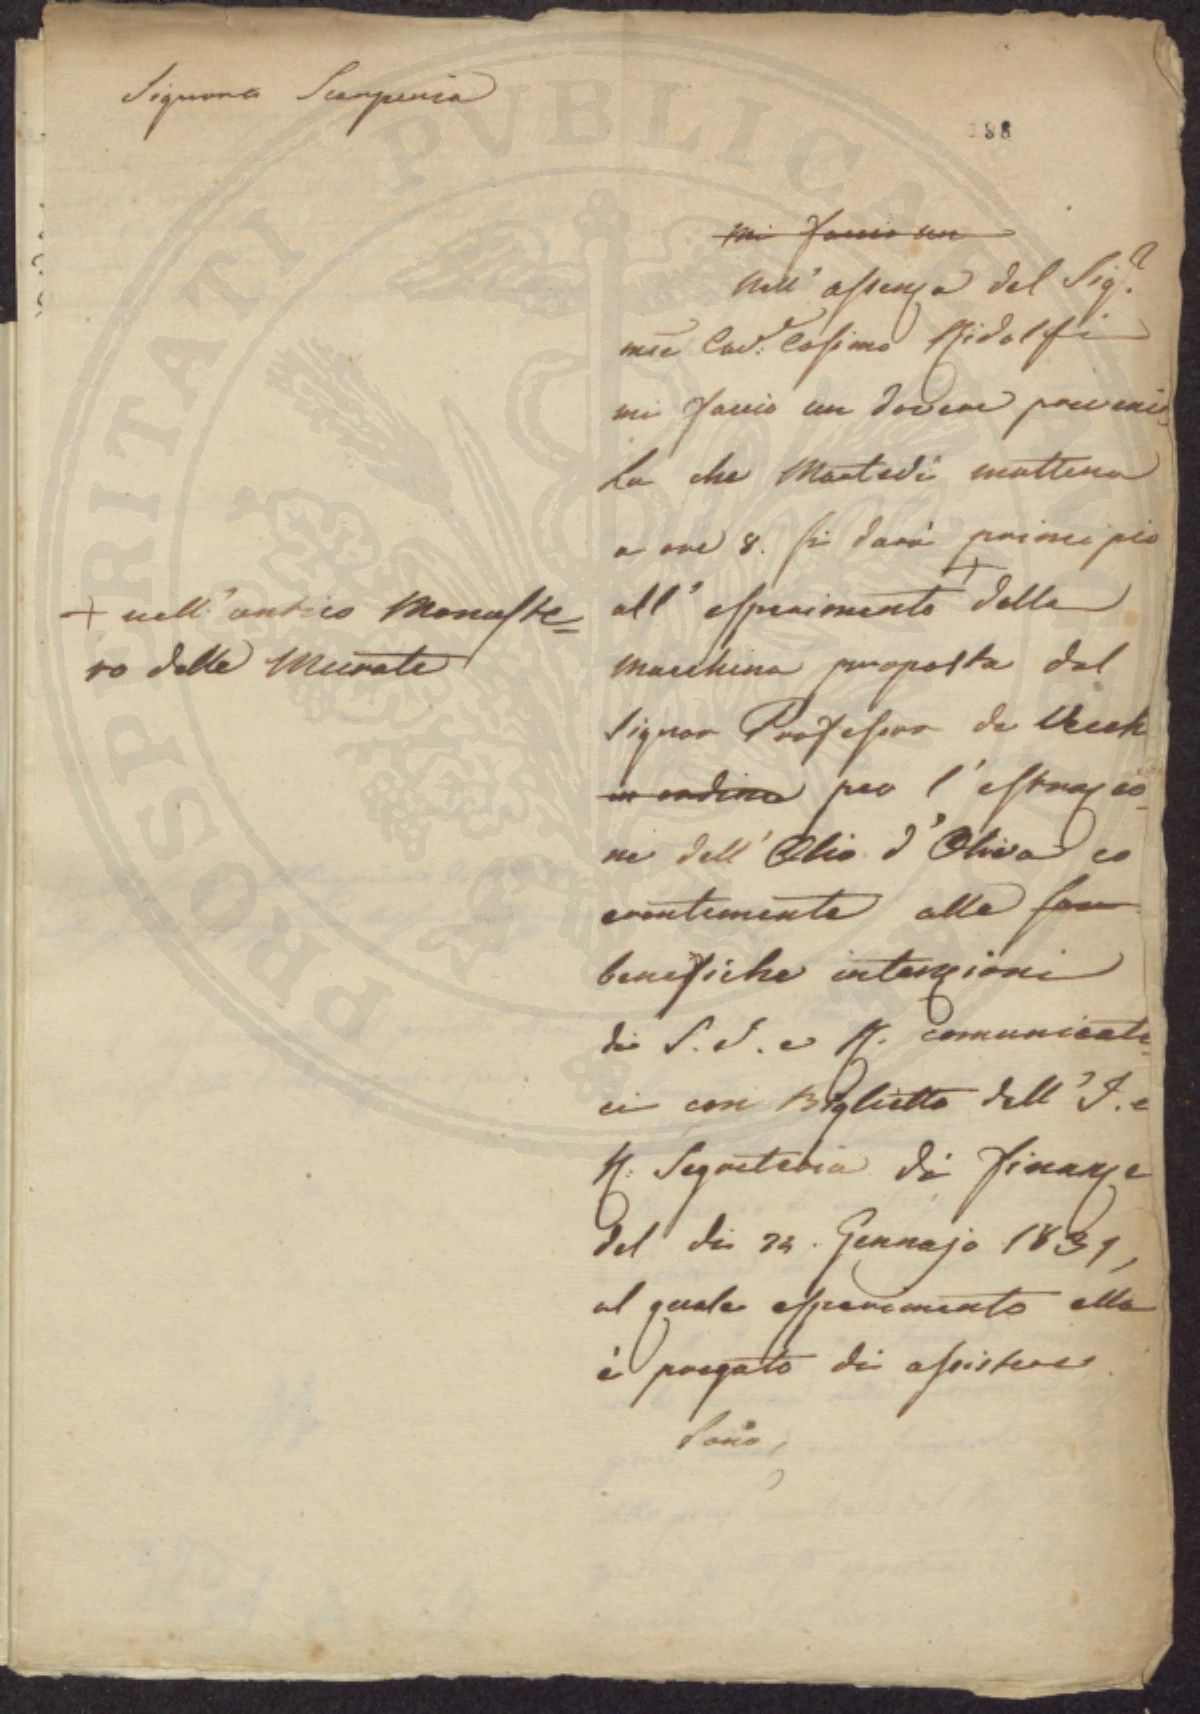 Signora Scarperia
188
mi faccio un
Nell' assenza del Sig.r
mse Cav.r Cosimo Ridolfi
mi faccio un dovere prevenir
la che Martedì mattina
a ore 8. si darà principio
all' esperimento + della
+ nell' antico Monaste=
ro delle Murate
Macchina proposta dal
Signor Professore de Vecch
in ordine per l' estrazio=
ne dell' Olio d' Oliva co
erentemente alle
benefiche intenzioni
di S. A. e R. comunicate=
ci con Biglietto dell' I. e
R. Segreteria di Finanze
del dì Gennajo 1831,
al quale esperimento ella
è pregato di assistere.